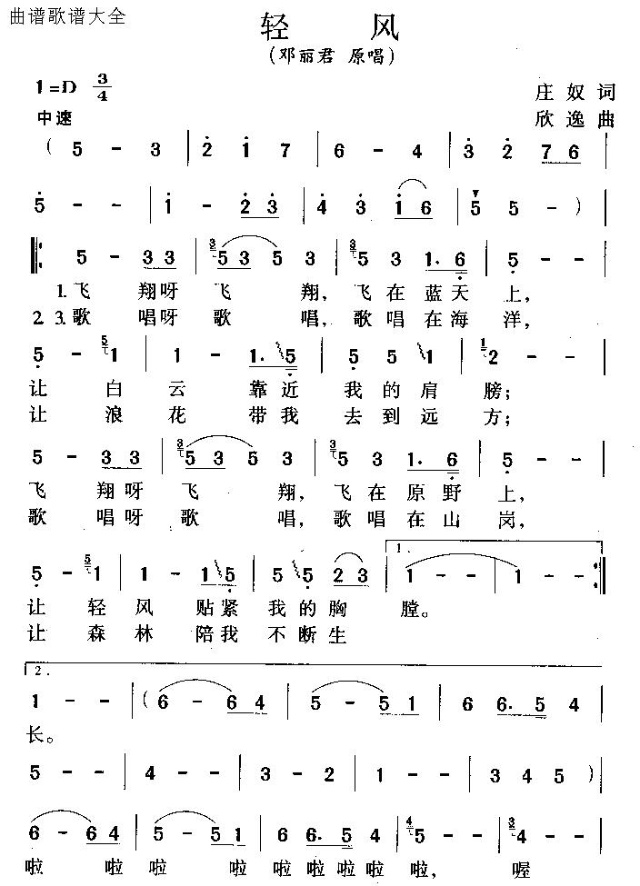 曲谱歌谱大全
轻 风
(邓丽君 原唱)
1=D 3/4
庄 奴 词
中速
欣 逸 曲
( 5 - 3 | 2 1 7 | 6 - 4 | 3 2 7 6 |
5 - - | 1 - 2 3 | 4 3 1 6 | 5 5 - ) |
5 - 3 3 | 3 5 3 5 3 | 3 5 3 1. 6 | 5 - - |
1. 飞 翔呀 飞 翔, 飞 在 蓝 天 上,
2. 3. 歌 唱呀 歌 唱, 歌 唱 在 海 洋,
5 - 5 1 | 1 - 1. 5 | 5 5 1 | 1 2 - - |
让 白 云 靠 近 我 的 肩 膀;
让 浪 花 带 我 去 到 远 方;
5 - 3 3 | 3 5 3 5 3 | 3 5 3 1. 6 | 5 - - |
飞 翔呀 飞 翔, 飞 在 原 野 上,
歌 唱呀 歌 唱, 歌 唱 在 山 岗,
1.
5 - 5 1 | 1 - 1 5 | 5 5. 2 3 | 1 - - 1 - - :|
让 轻 风 贴 紧 我 的 胸 膛。
让 森 林 陪 我 不 断 生
2.
1 - - | ( 6 - 6 4 | 5 - 5 1 | 6 6. 5 4 |
长。
5 - - | 4 - - | 3 - 2 | 1 - - | 3 4 5 ) |
6 - 6 4 | 5 - 5 1 | 6 6. 5 4 | 4 5 - - | 3 4 - - |
啦 啦 啦 啦 啦 啦 啦 啦 啦, 喔